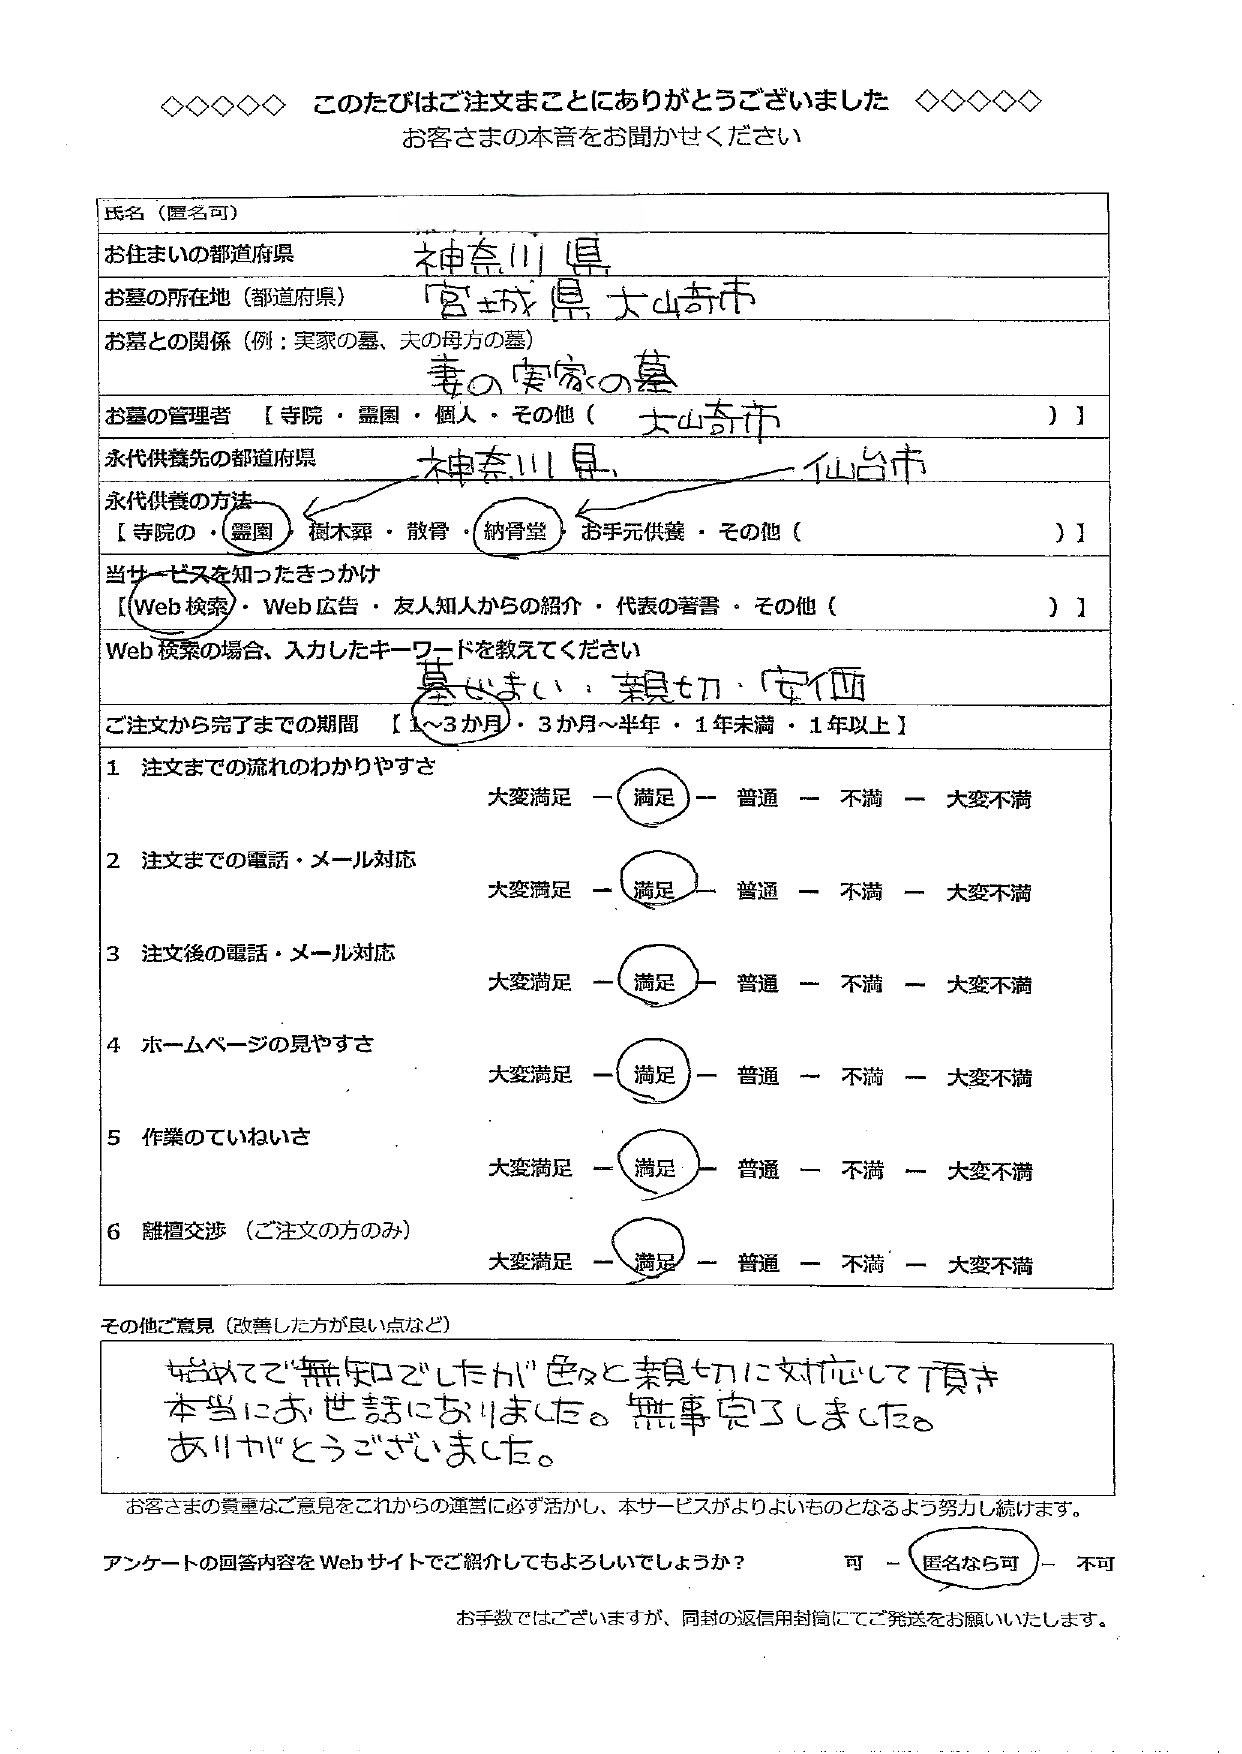 ◇◇◇◇◇ このたびはご注文まことにありがとうございました ◇◇◇◇◇
お客さまの本音をお聞かせください
氏名（匿名可）
お住まいの都道府県 神奈川県
お墓の所在地（都道府県） 宮城県大崎市
お墓との関係（例：実家の墓、夫の母方の墓）
妻の実家の墓
お墓の管理者 【 寺院 ・ 霊園 ・ 個人 ・ その他（ 大崎市 ）】
永代供養先の都道府県 神奈川県、 仙台市
永代供養の方法
【 寺院の ・ 霊園 ・ 樹木葬 ・ 散骨 ・ 納骨堂 ・ お手元供養 ・ その他（ ）】
当サービスを知ったきっかけ
【 Web検索 ・ Web広告 ・ 友人知人からの紹介 ・ 代表の著書 ・ その他（ ）】
Web検索の場合、入力したキーワードを教えてください
墓じまい・親切・安価
ご注文から完了までの期間 【 1～3か月 ・ 3か月～半年 ・ 1年未満 ・ 1年以上 】
1 注文までの流れのわかりやすさ
大変満足 － 満足 － 普通 － 不満 － 大変不満
2 注文までの電話・メール対応
大変満足 － 満足 － 普通 － 不満 － 大変不満
3 注文後の電話・メール対応
大変満足 － 満足 － 普通 － 不満 － 大変不満
4 ホームページの見やすさ
大変満足 － 満足 － 普通 － 不満 － 大変不満
5 作業のていねいさ
大変満足 － 満足 － 普通 － 不満 － 大変不満
6 離檀交渉 （ご注文の方のみ）
大変満足 － 満足 － 普通 － 不満 － 大変不満
その他ご意見（改善した方が良い点など）
始めてで無知でしたが色々と親切に対応して頂き
本当にお世話になりました。無事完了しました。
ありがとうございました。
お客さまの貴重なご意見をこれからの運営に必ず活かし、本サービスがよりよいものとなるよう努力し続けます。
アンケートの回答内容をWebサイトでご紹介してもよろしいでしょうか？ 可 － 匿名なら可 － 不可
お手数ではございますが、同封の返信用封筒にてご発送をお願いいたします。